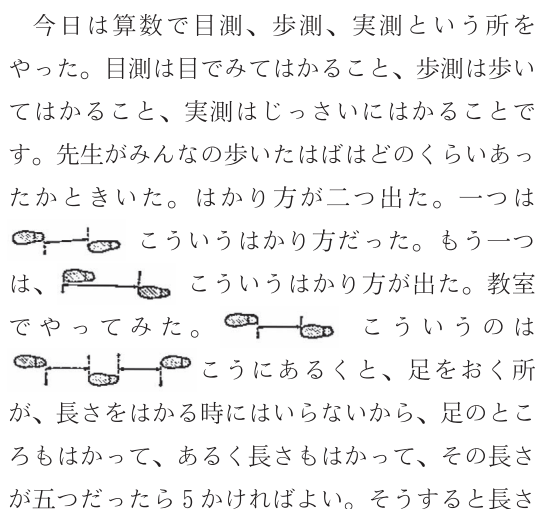 今日は算数で目測、歩測、実測という所を
やった。目測は目でみてはかること、歩測は歩い
てはかること、実測はじっさいにはかることで
す。先生がみんなの歩いたはばはどのくらいあっ
たかときいた。はかり方が二つ出た。一つは
こういうはかり方だった。もう一つ
は、こういうはかり方が出た。教室
でやってみた。こういうのは
こうにあるくと、足をおく所
が、長さをはかる時にはいらないから、足のとこ
ろもはかって、あるく長さもはかって、その長さ
が五つだったら5かければよい。そうすると長さ